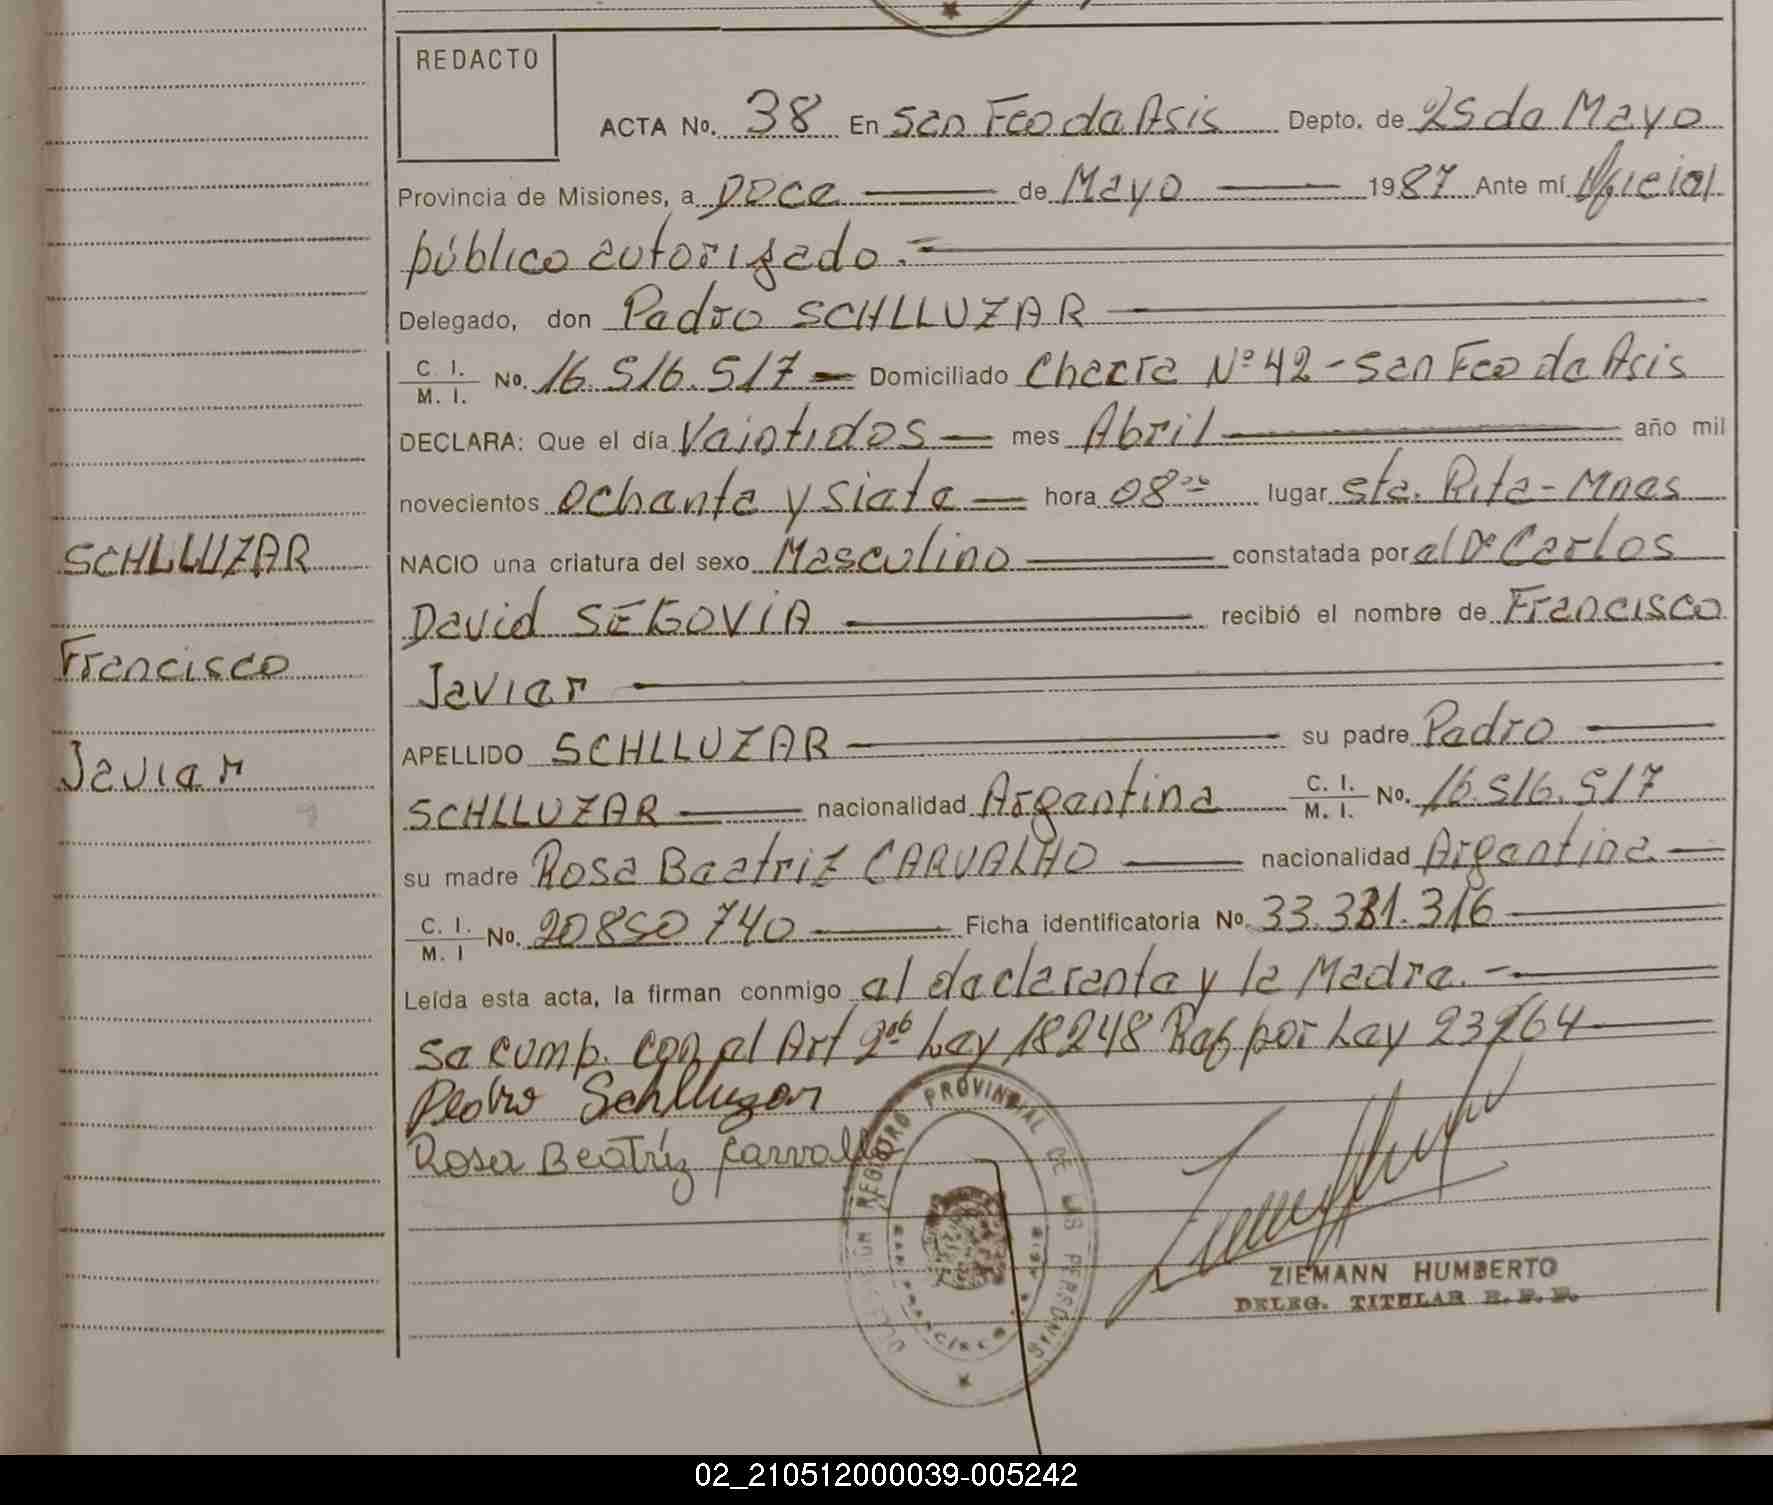 REDACTO
ACTA No. 38 En San Fco de Asis Depto. de 25 de Mayo
Provincia de Misiones, a Doce de Mayo 1987 Ante mí Oficial
público autorizado.=
Delegado, don Pedro SCHLLUZAR
C. I. / M. I. No. 16.516.517 Domiciliado Chacra Nº 42 - San Fco de Asis
DECLARA: Que el día Veintidos mes Abril año mil
novecientos ochenta y siete hora 08 00 lugar sta. Rita - Mnes
SCHLLUZAR
NACIO una criatura del sexo Masculino constatada por el Dr Carlos
David SEGOVIA recibió el nombre de Francisco
Francisco
Javier
APELLIDO SCHLLUZAR su padre Pedro
Javier
SCHLLUZAR nacionalidad Argentina C. I. / M. I. No. 16.516.517
su madre Rosa Beatriz CARVALHO nacionalidad Argentina
C. I. / M. I No. 20850740 Ficha identificatoria No. 33.381.316
Leída esta acta, la firman conmigo el declarante y la Madre.-
se cump. con el Art 2do Ley 18248 Ref por Ley 23264
Pedro Schlluzar
Rosa Beatríz Carvalho
REGISTRO PROVINCIAL DE LAS PERSONAS
SAN FRANCISCO
ZIEMANN HUMBERTO
DELEG. TITULAR R. P. P.
02_210512000039-005242